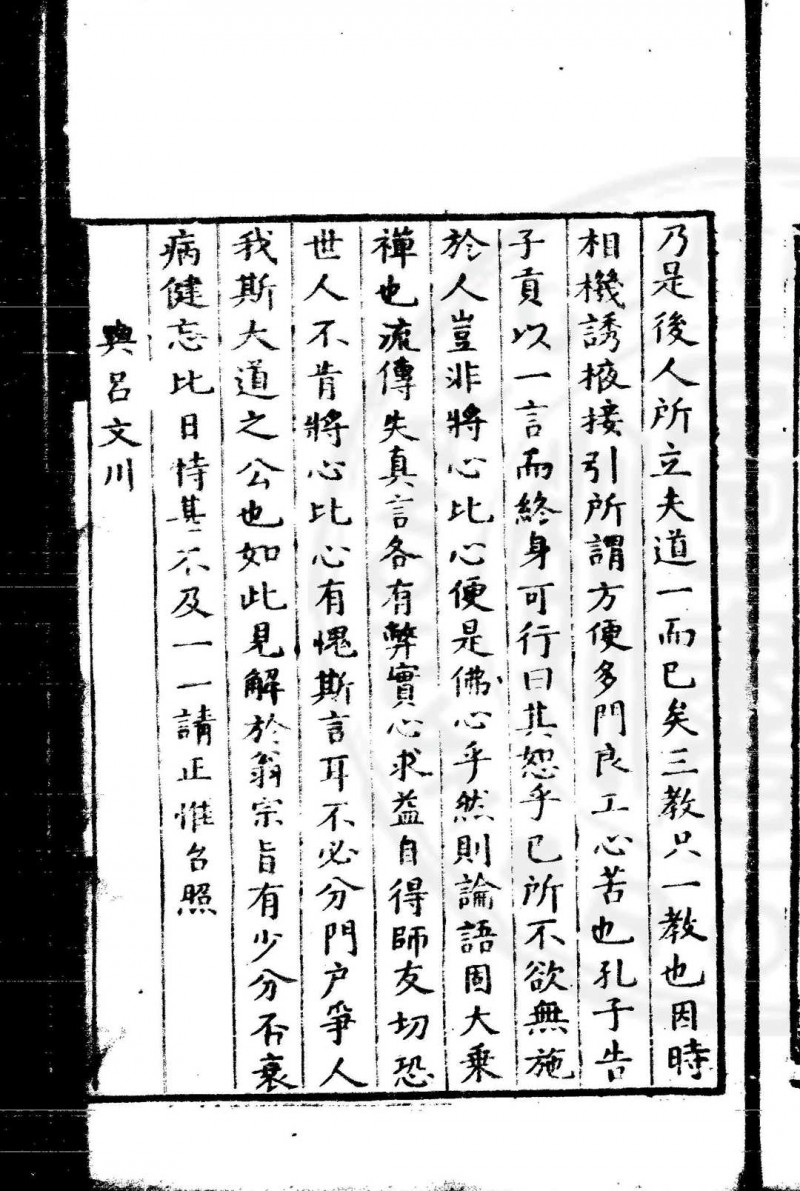 乃是後人所立夫道一而已矣三教只一教也因時
相機誘掖接引所謂方便多門良工心苦也孔子告
子貢以一言而終身可行曰其恕乎己所不欲無施
於人豈非將心比心便是佛心乎然則論語固大乗
禪也流傳失真言各有弊實心求益自得師友切恐
世人不肯將心比心有愧斯言耳不必分門户爭人
我斯大道之公也如此見解於翁宗旨有少分否衰
病健忘比日恃其不及一一請正惟台照
與呂文川